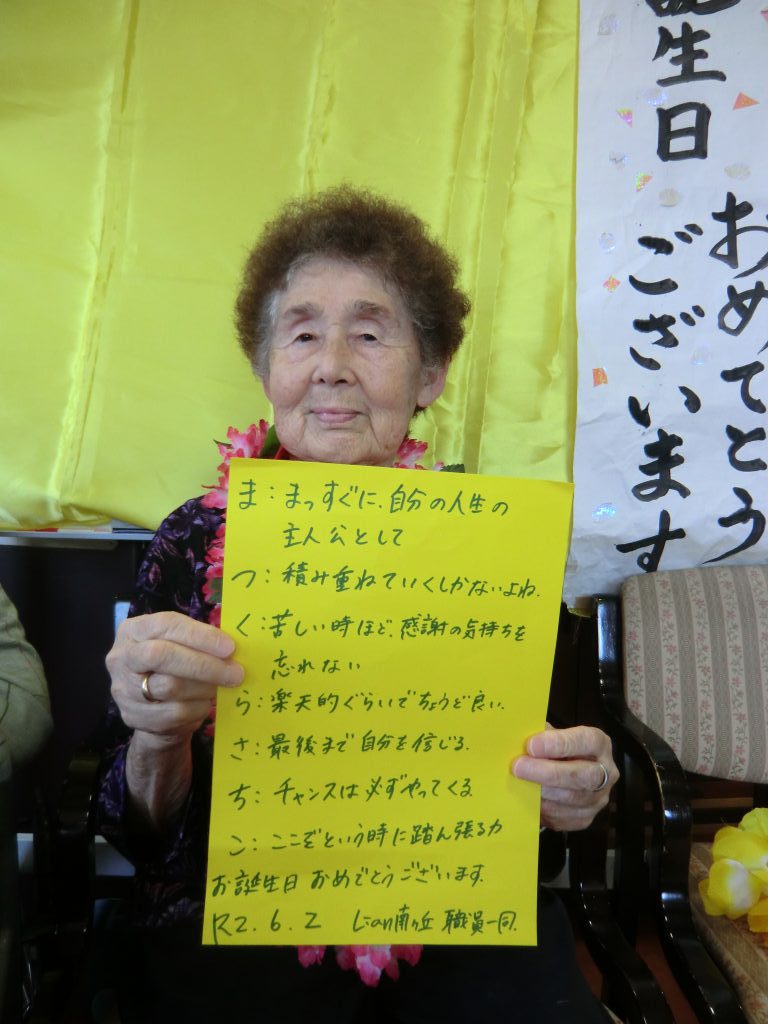 誕生日
おめでとう
ございます
ま：まっすぐに、自分の人生の
主人公として
つ：積み重ねていくしかないよね.
く：苦しい時ほど、感謝の気持ちを
忘れない
ら：楽天的ぐらいでちょうど良い.
さ：最後まで自分を信じる.
ち：チャンスは必ずやってくる
こ：ここぞという時に踏ん張る力
お誕生日 おめでとうございます.
R2.6.2 Lian南ヶ丘 職員一同.